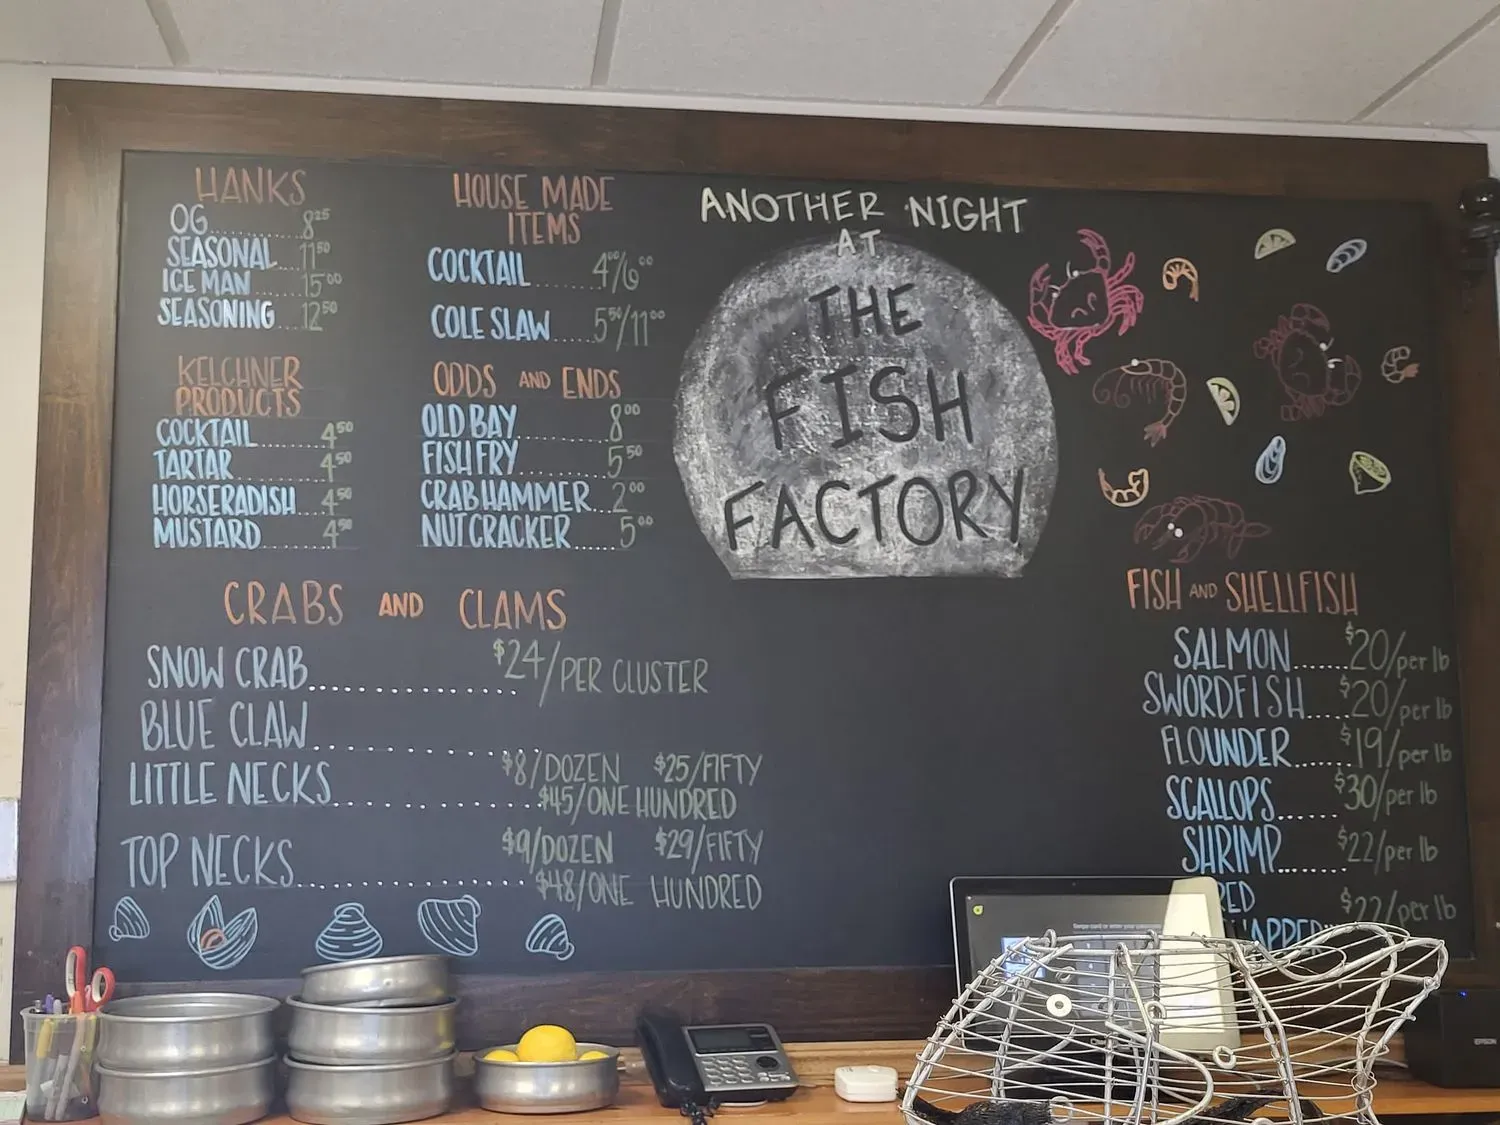 HANKS
OG..........8²⁵
SEASONAL....11⁵⁰
ICE MAN.....15⁰⁰
SEASONING...12⁵⁰
KELCHNER
PRODUCTS
COCKTAIL.......4⁵⁰
TARTAR.........4⁵⁰
HORSERADISH....4⁵⁰
MUSTARD........4⁵⁰
HOUSE MADE
ITEMS
COCKTAIL........4⁰⁰/6⁰⁰
COLE SLAW.....5⁵⁰/11⁰⁰
ODDS AND ENDS
OLD BAY..........8⁰⁰
FISH FRY..........5⁵⁰
CRAB HAMMER...2⁰⁰
NUT CRACKER.....5⁰⁰
ANOTHER NIGHT
AT
THE
FISH
FACTORY
CRABS AND CLAMS
SNOW CRAB................$24/PER CLUSTER
BLUE CLAW.................
LITTLE NECKS.................$8/DOZEN $25/FIFTY
$45/ONE HUNDRED
TOP NECKS.................$9/DOZEN $29/FIFTY
$48/ONE HUNDRED
FISH AND SHELLFISH
SALMON......$20/per lb
SWORDFISH....$20/per lb
FLOUNDER......$19/per lb
SCALLOPS......$30/per lb
SHRIMP.......$22/per lb
RED $22/per lb
EPSON